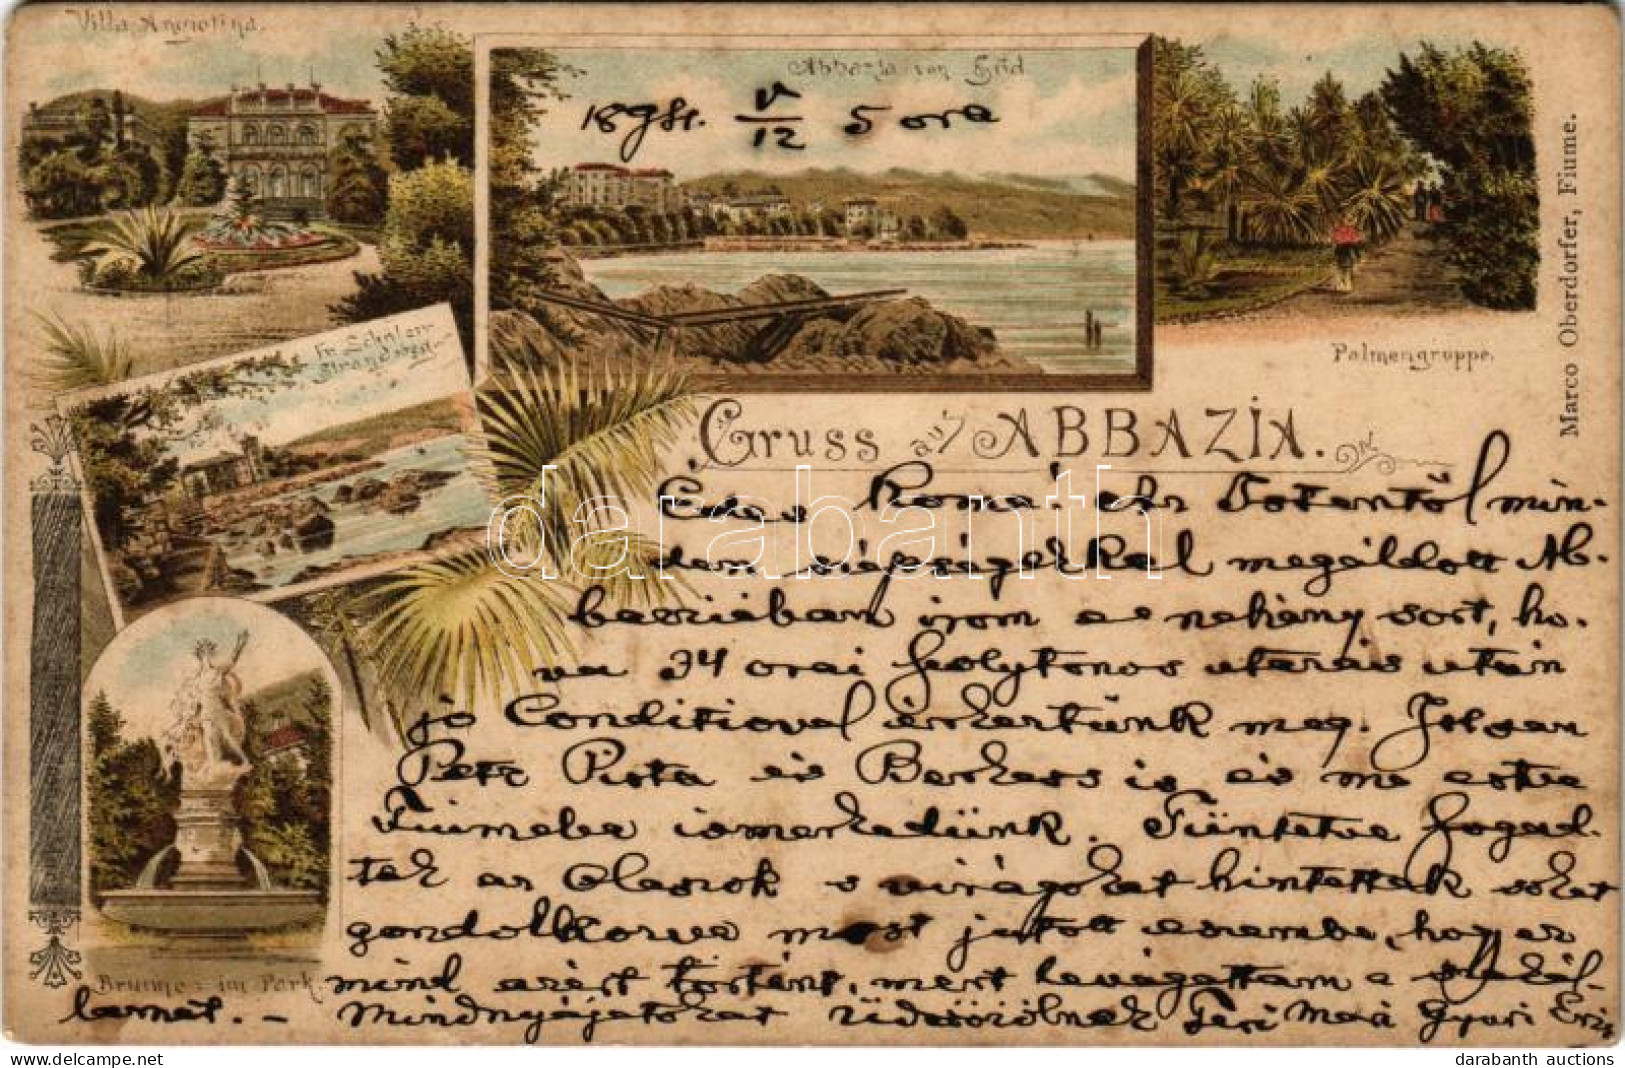 Villa Angiolina.
Abbazia von Süd
1898. V/12 5 ora
Palmengruppe.
Marco Oberdorfer, Fiume.
Fr. Schüler
Strandweg
Gruss aus ABBAZIA.
Édes Roma! Az Istentől min-
den szépségekkel megáldott Ab-
baziában irom ez nehány sort, ho-
va 34 orai folytonos utazás után
jó Conditioval érkeztünk meg.
Petz Pista és is és ma este
Fiumeba ismerkedünk. Tüntetve fogad-
tak az Olaszok s virágokat hintettek sokat
gondolkozva most jutott eszembe, hogy ez
mind azért történt, mert levágattam a szakál-
lamat. - Mindnyájatokat üdvözölnek Teri Mari Gyuri
Brunnen im Park
darabanth
darabanth auctions